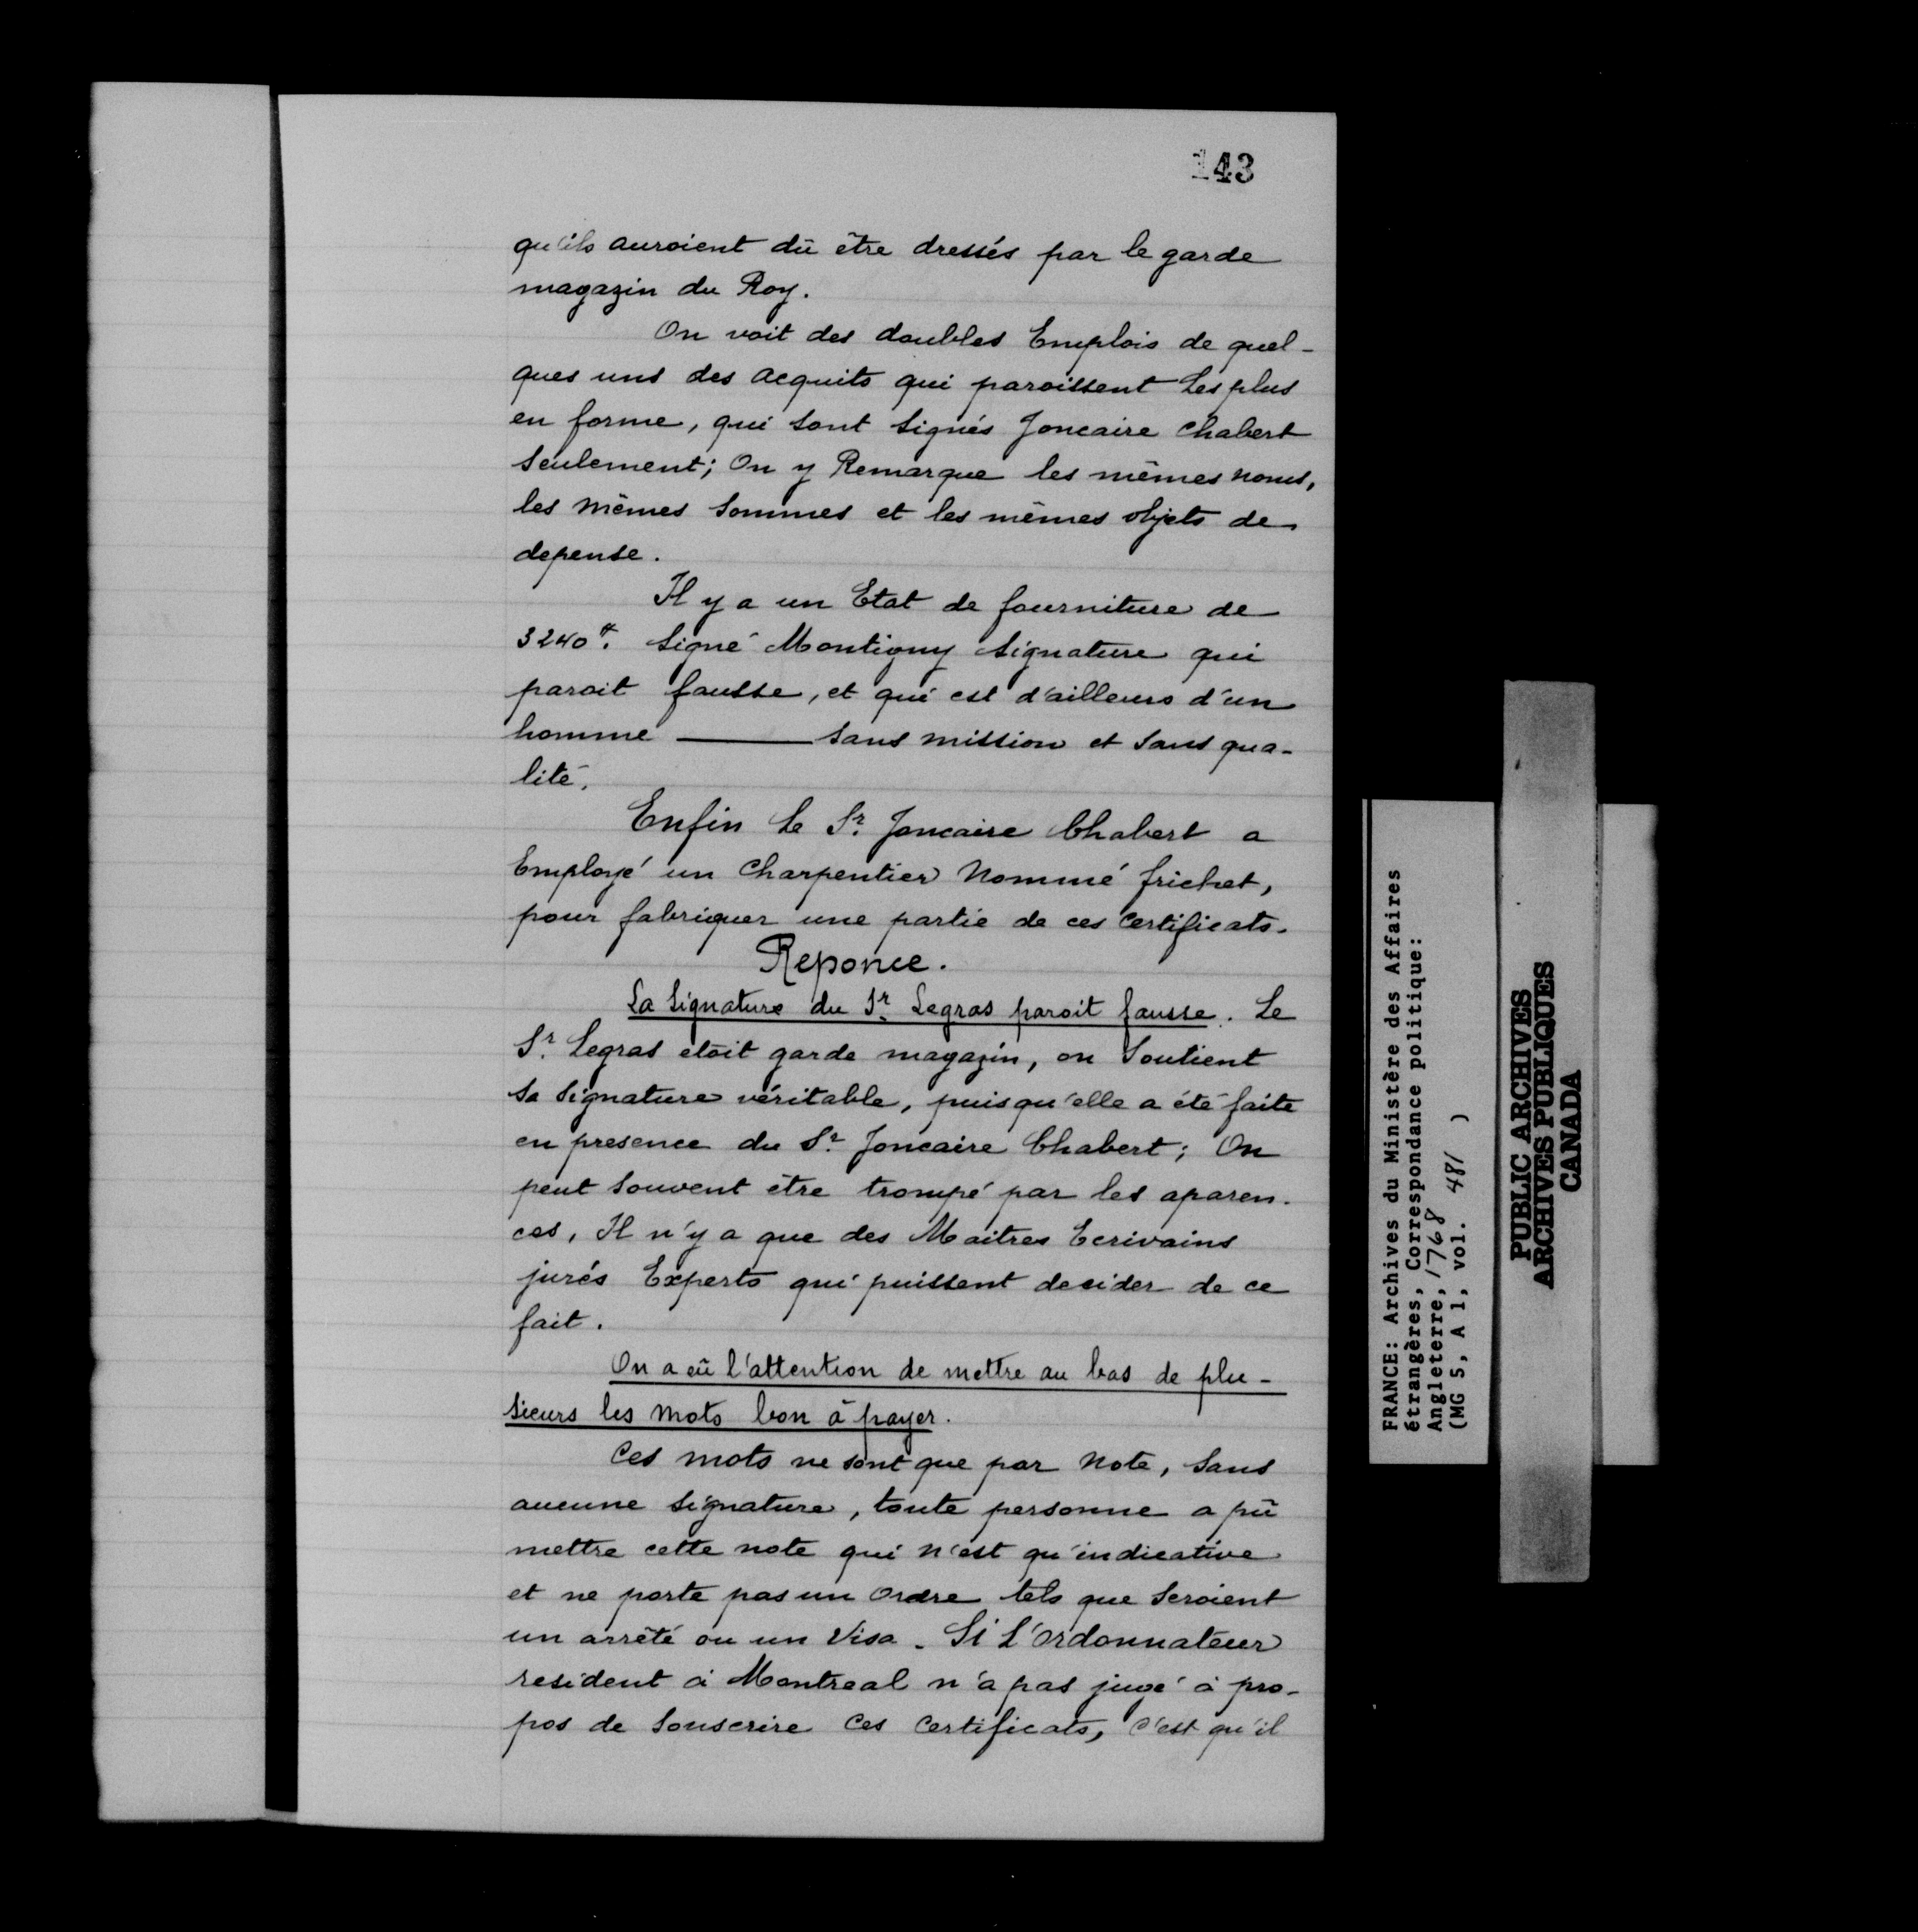 143
qu'ils auroient dû être dressés par le garde
magazin du Roy.
On voit des doubles Emplois de quel-
ques uns des acquits qui paroissent Les plus
en forme, qui sont signés Joncaire Chabert
seulement; On y Remarque les mêmes noms,
les mêmes sommes et les mêmes objets de
depense.
Il y a un Etat de fourniture de
3240#. signé Montigny signature qui
paroit fausse, et qui est d'ailleurs d'un
homme ——— sans mission et sans qua-
lité.
Enfin Le Sr. Joncaire Chabert a
Employé un Charpentier Nommé frichet,
pour fabriquer une partie de ces Certificats.
Reponce.
La signature du Sr. Legras paroit fausse. Le
Sr. Legras etoit garde magazin, on Soutient
sa signature véritable, puisqu'elle a été faite
en presence du Sr. Joncaire Chabert; On
peut souvent être trompé par les aparen-
ces, Il n'y a que des Maitres Ecrivains
jurés Experts qui puissent decider de ce
fait.
On a eû l'attention de mettre au bas de plu-
sieurs les mots bon à payer.
Ces mots ne sont que par Note, sans
aucune signature, toute personne a pû
mettre cette note qui n'est qu'indicative
et ne porte pas un Ordre tels que Seroient
un arrêté ou un Visa. Si L'ordonnateur
resident à Montreal n'a pas jugé à pro-
pos de souscrire Ces Certificats, C'est qu'il
FRANCE: Archives du Ministère des Affaires
étrangères, Correspondance politique:
Angleterre, 1768
(MG 5, A 1, vol. 481 )
PUBLIC ARCHIVES
ARCHIVES PUBLIQUES
CANADA